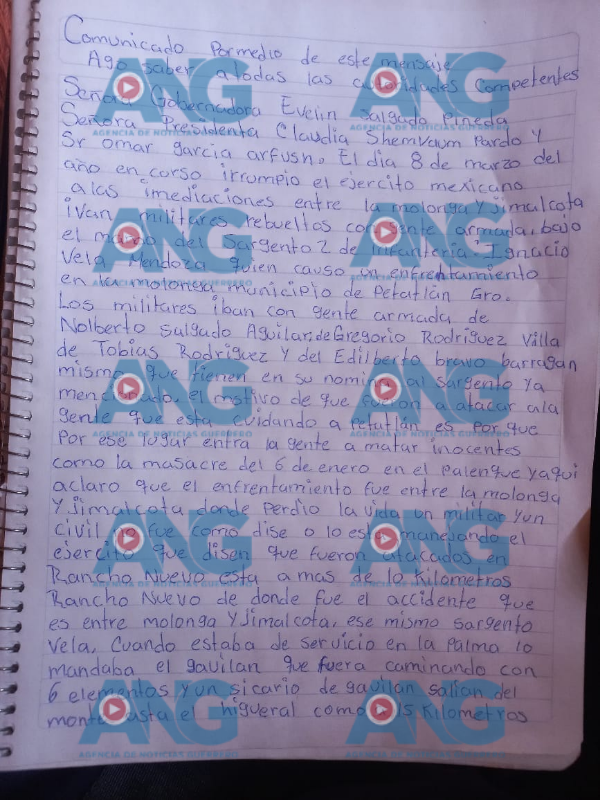 Comunicado Pormedio de este mensaje
Ago saber atodas las autoridades Competentes
Señora Gobernadora Evelin Salgado Pineda
Señora Presidenta Claudia Shemvaum Pardo Y
Sr omar garcia arfush. El dia 8 de marzo del
año en corso irrumpio el ejercito mexicano
alas imediaciones entre la molonga y Jimalcota
ivan militares rebueltos con gente armada. bajo
el mando del Sargento 2 de infanteria. Ignacio
Vela Mendoza quien causo un enfrentamiento
en la molonga municipio de Petatlán Gro.
Los militares iban con gente armada de
Nolberto Salgado Aguilar, de Gregorio Rodriguez Villa
de Tobias Rodriguez Y del Edilberto bravo barragan
mismo que tienen en su nomina al Sargento Ya
mencionado. el motivo de que fueron a atacar ala
gente que esta cuidando a Petatlán es Por que
Por ese lugar entra la gente a matar inocentes
como la masacre del 6 de enero en el Palenque yaqui
aclaro que el enfrentamiento fue entre la molonga
Y Jimalcota donde Perdio la vida un militar yun
civil no fue como dise o lo esta manejando el
ejercito que disen que fueron atacados en
Rancho Nuevo esta amas de 10 Kilometros
Rancho Nuevo de donde fue el accidente que
es entre molonga Y Jimalcota. ese mismo sargento
Vela. Cuando estaba de servicio en la Palma lo
mandaba el gavilan que fuera caminando con
6 elementos Y un sicario de gavilan salian del
monte asta el higueral como 15 Kilometros
ANG
AGENCIA DE NOTICIAS GUERRERO